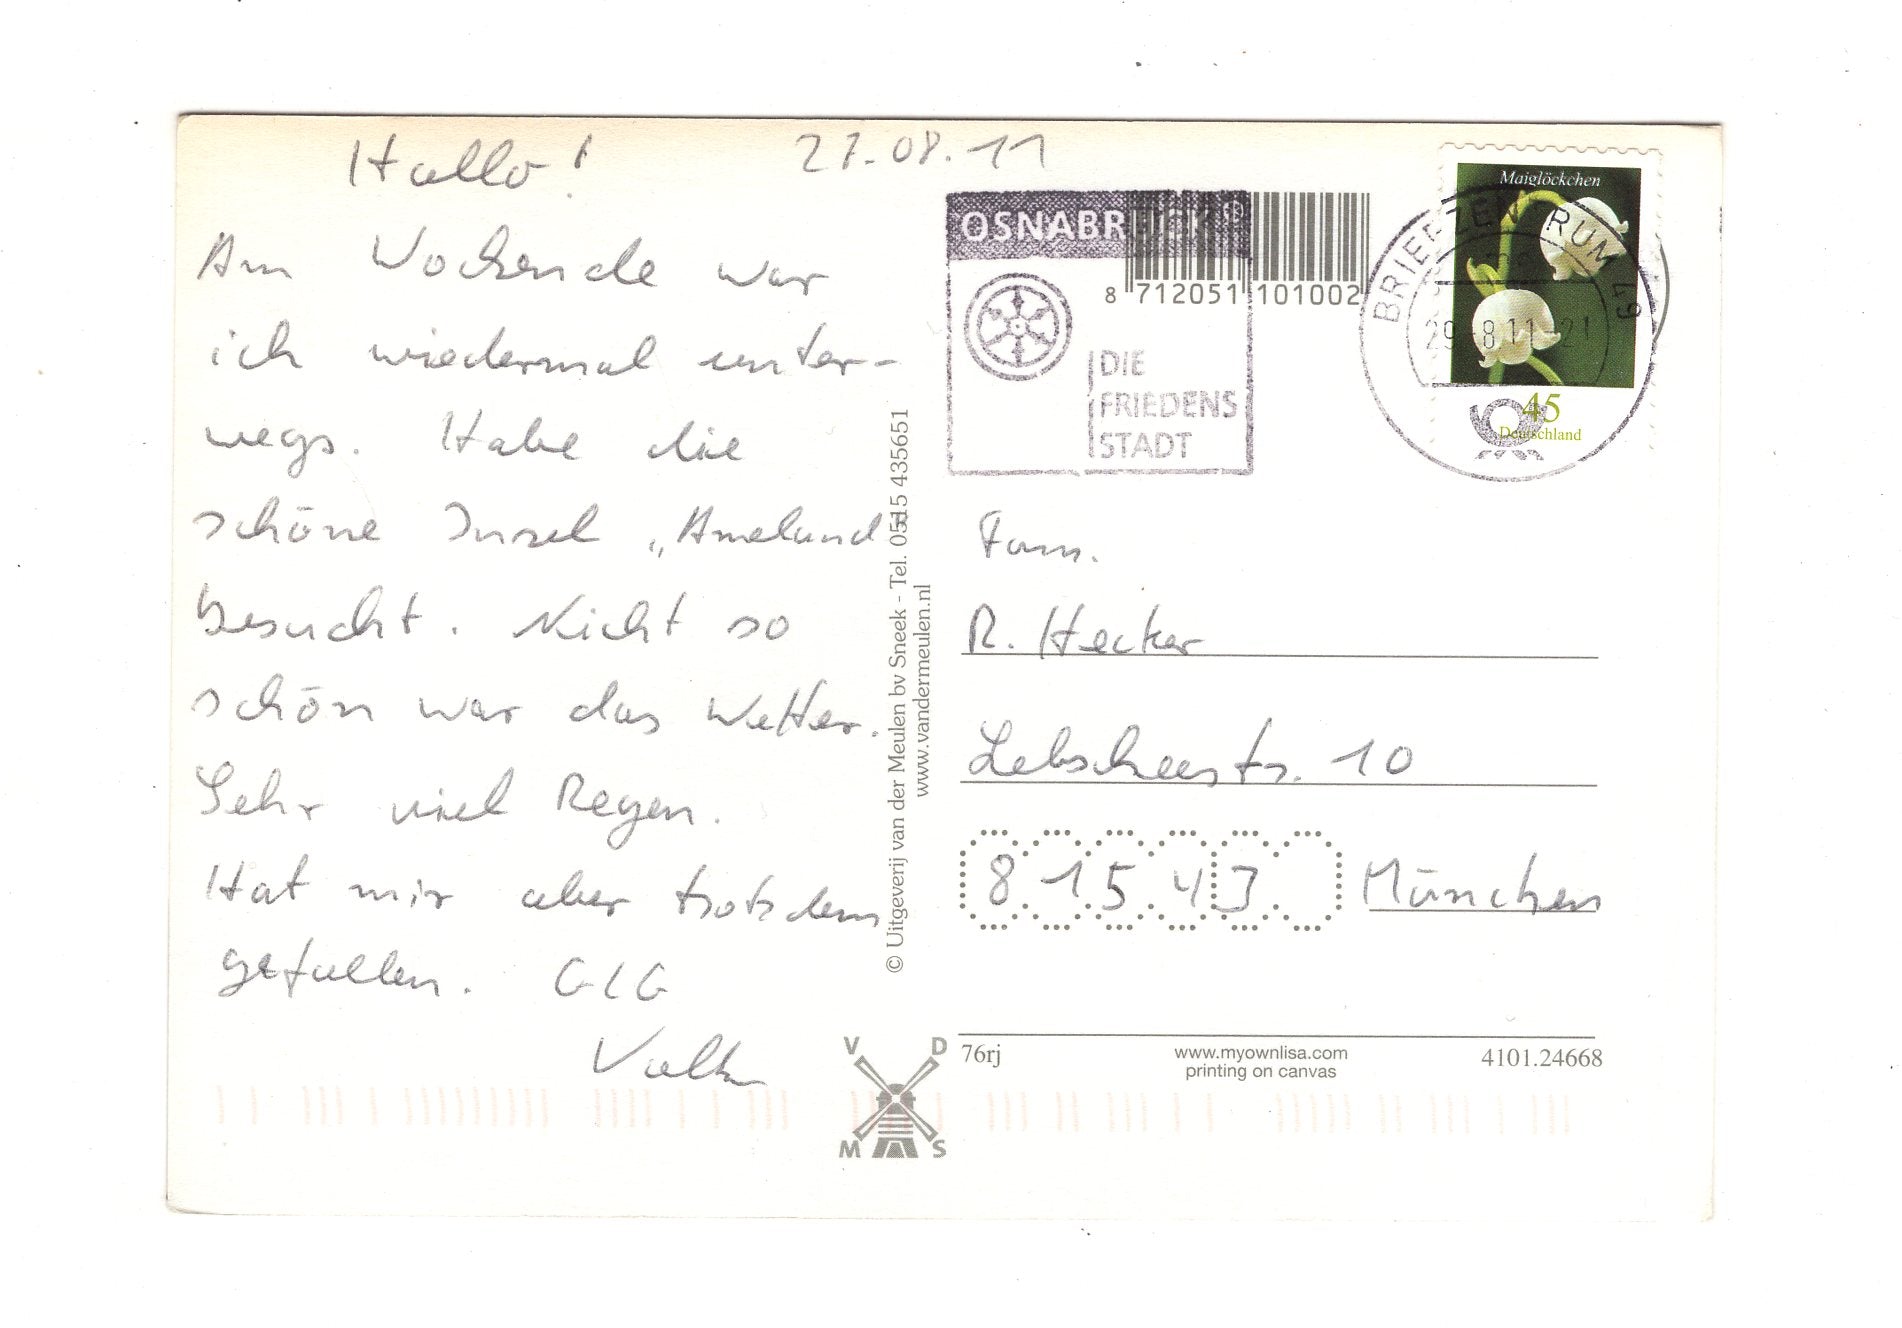 Hallo! 27.08.11
Am Wochende war
ich wiedermal unter-
wegs. Habe die
schöne Insel „Ameland"
besucht. Nicht so
schön war das Wetter.
Sehr viel Regen.
Hat mir aber trotzdem
gefallen. GLG
OSNABRÜCK
DIE
FRIEDENS
STADT
8 712051 101002
Maiglöckchen
45
Deutschland
BRIEFZENTRUM 49
29.-8.11-21
© Uitgeverij van der Meulen bv Sneek - Tel. 0515 435651
www.vandermeulen.nl
Fam.
R. Hecker
Lebscheestr. 10
81543 München
V D
M S
76rj
www.myownlisa.com
printing on canvas
4101.24668